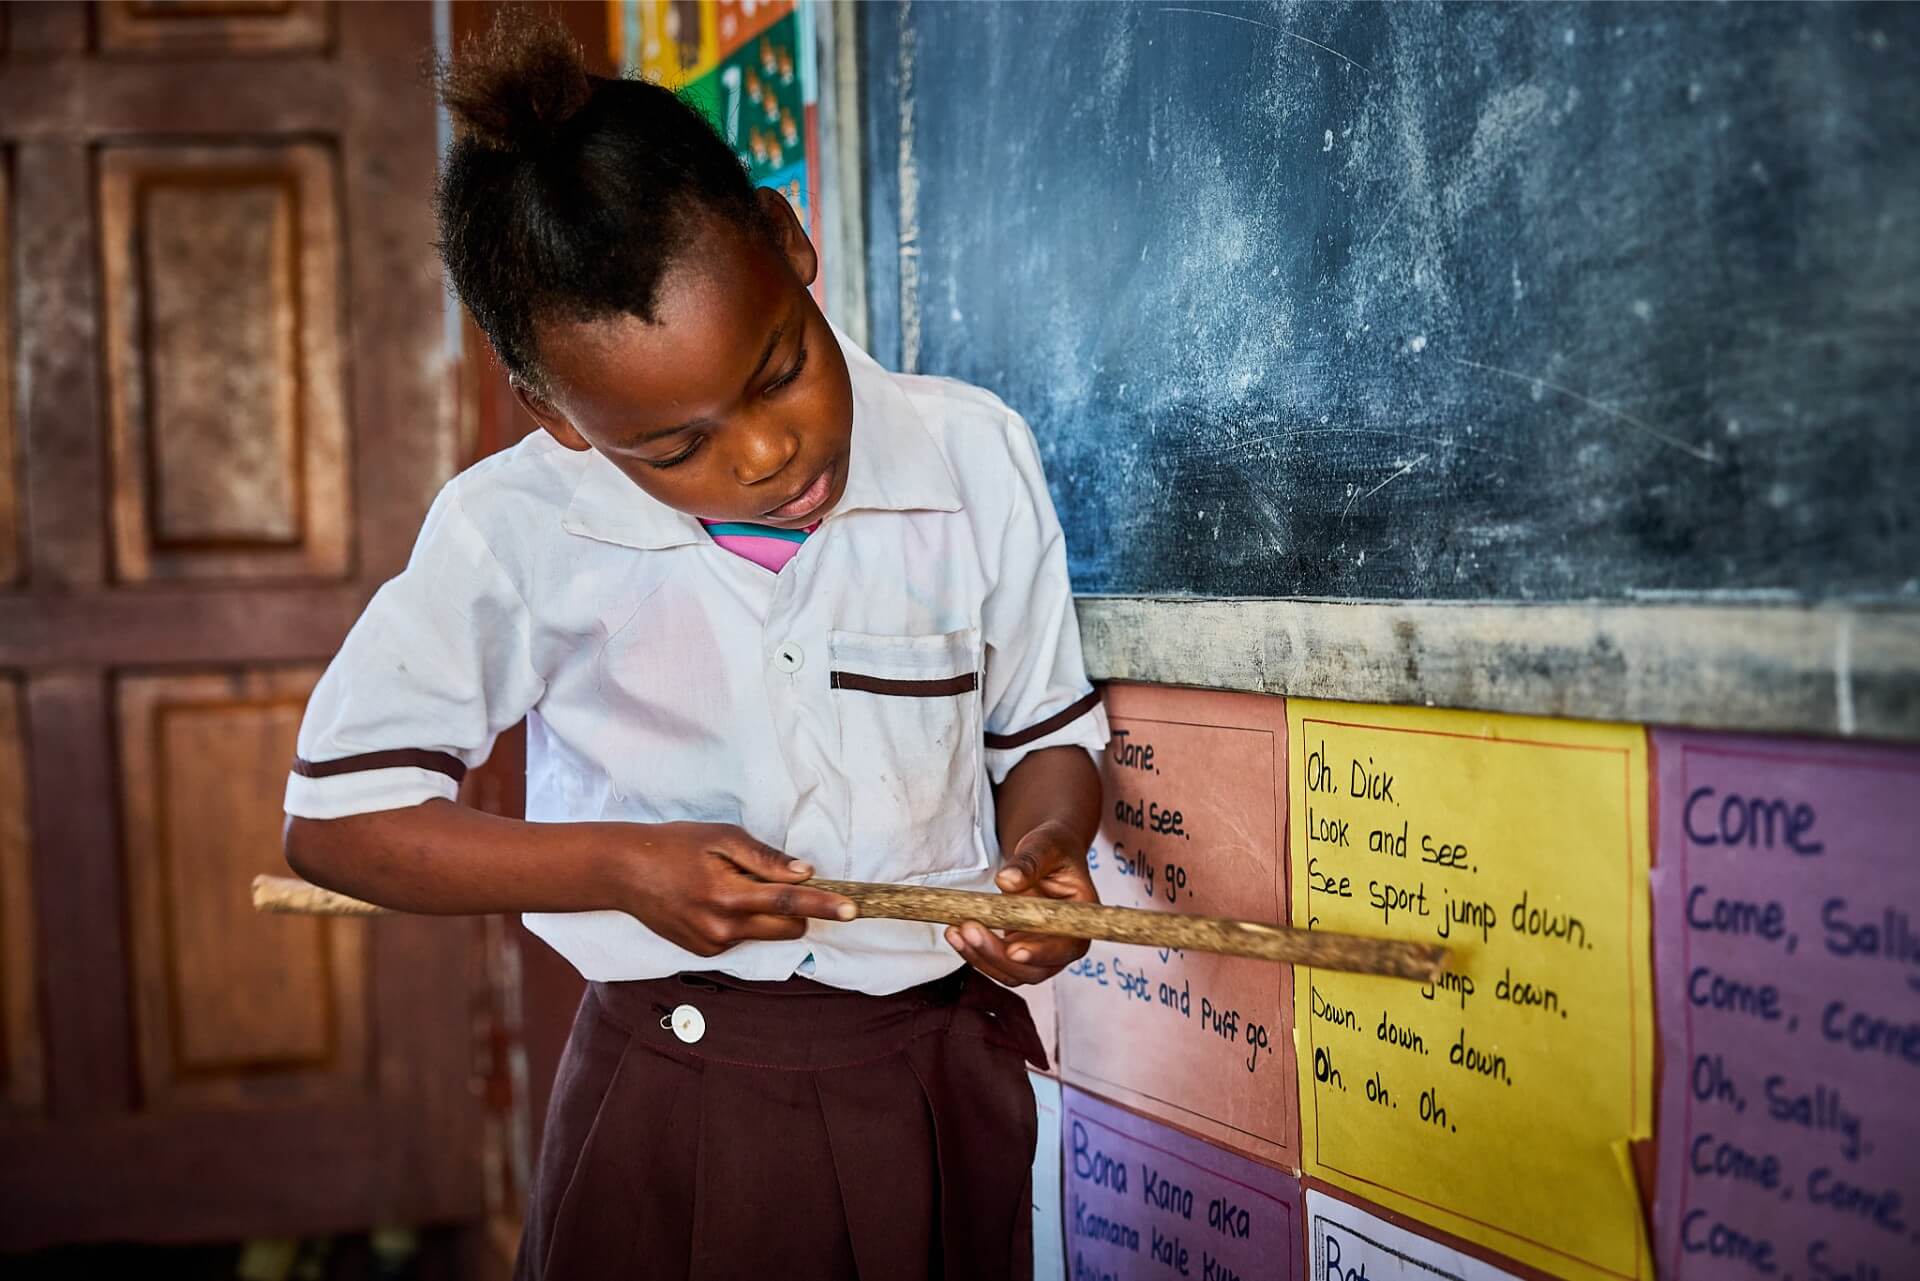 Jane.
and see.
Sally go.
go.
See Spot and Puff go.
Oh, Dick.
Look and see.
See sport jump down.
jump down.
Down. down. down.
Oh. oh. Oh.
Come
Come, Sally
Come, come
Oh, Sally.
Come, come,
Come
Bona Kana aka
Kamana Kale